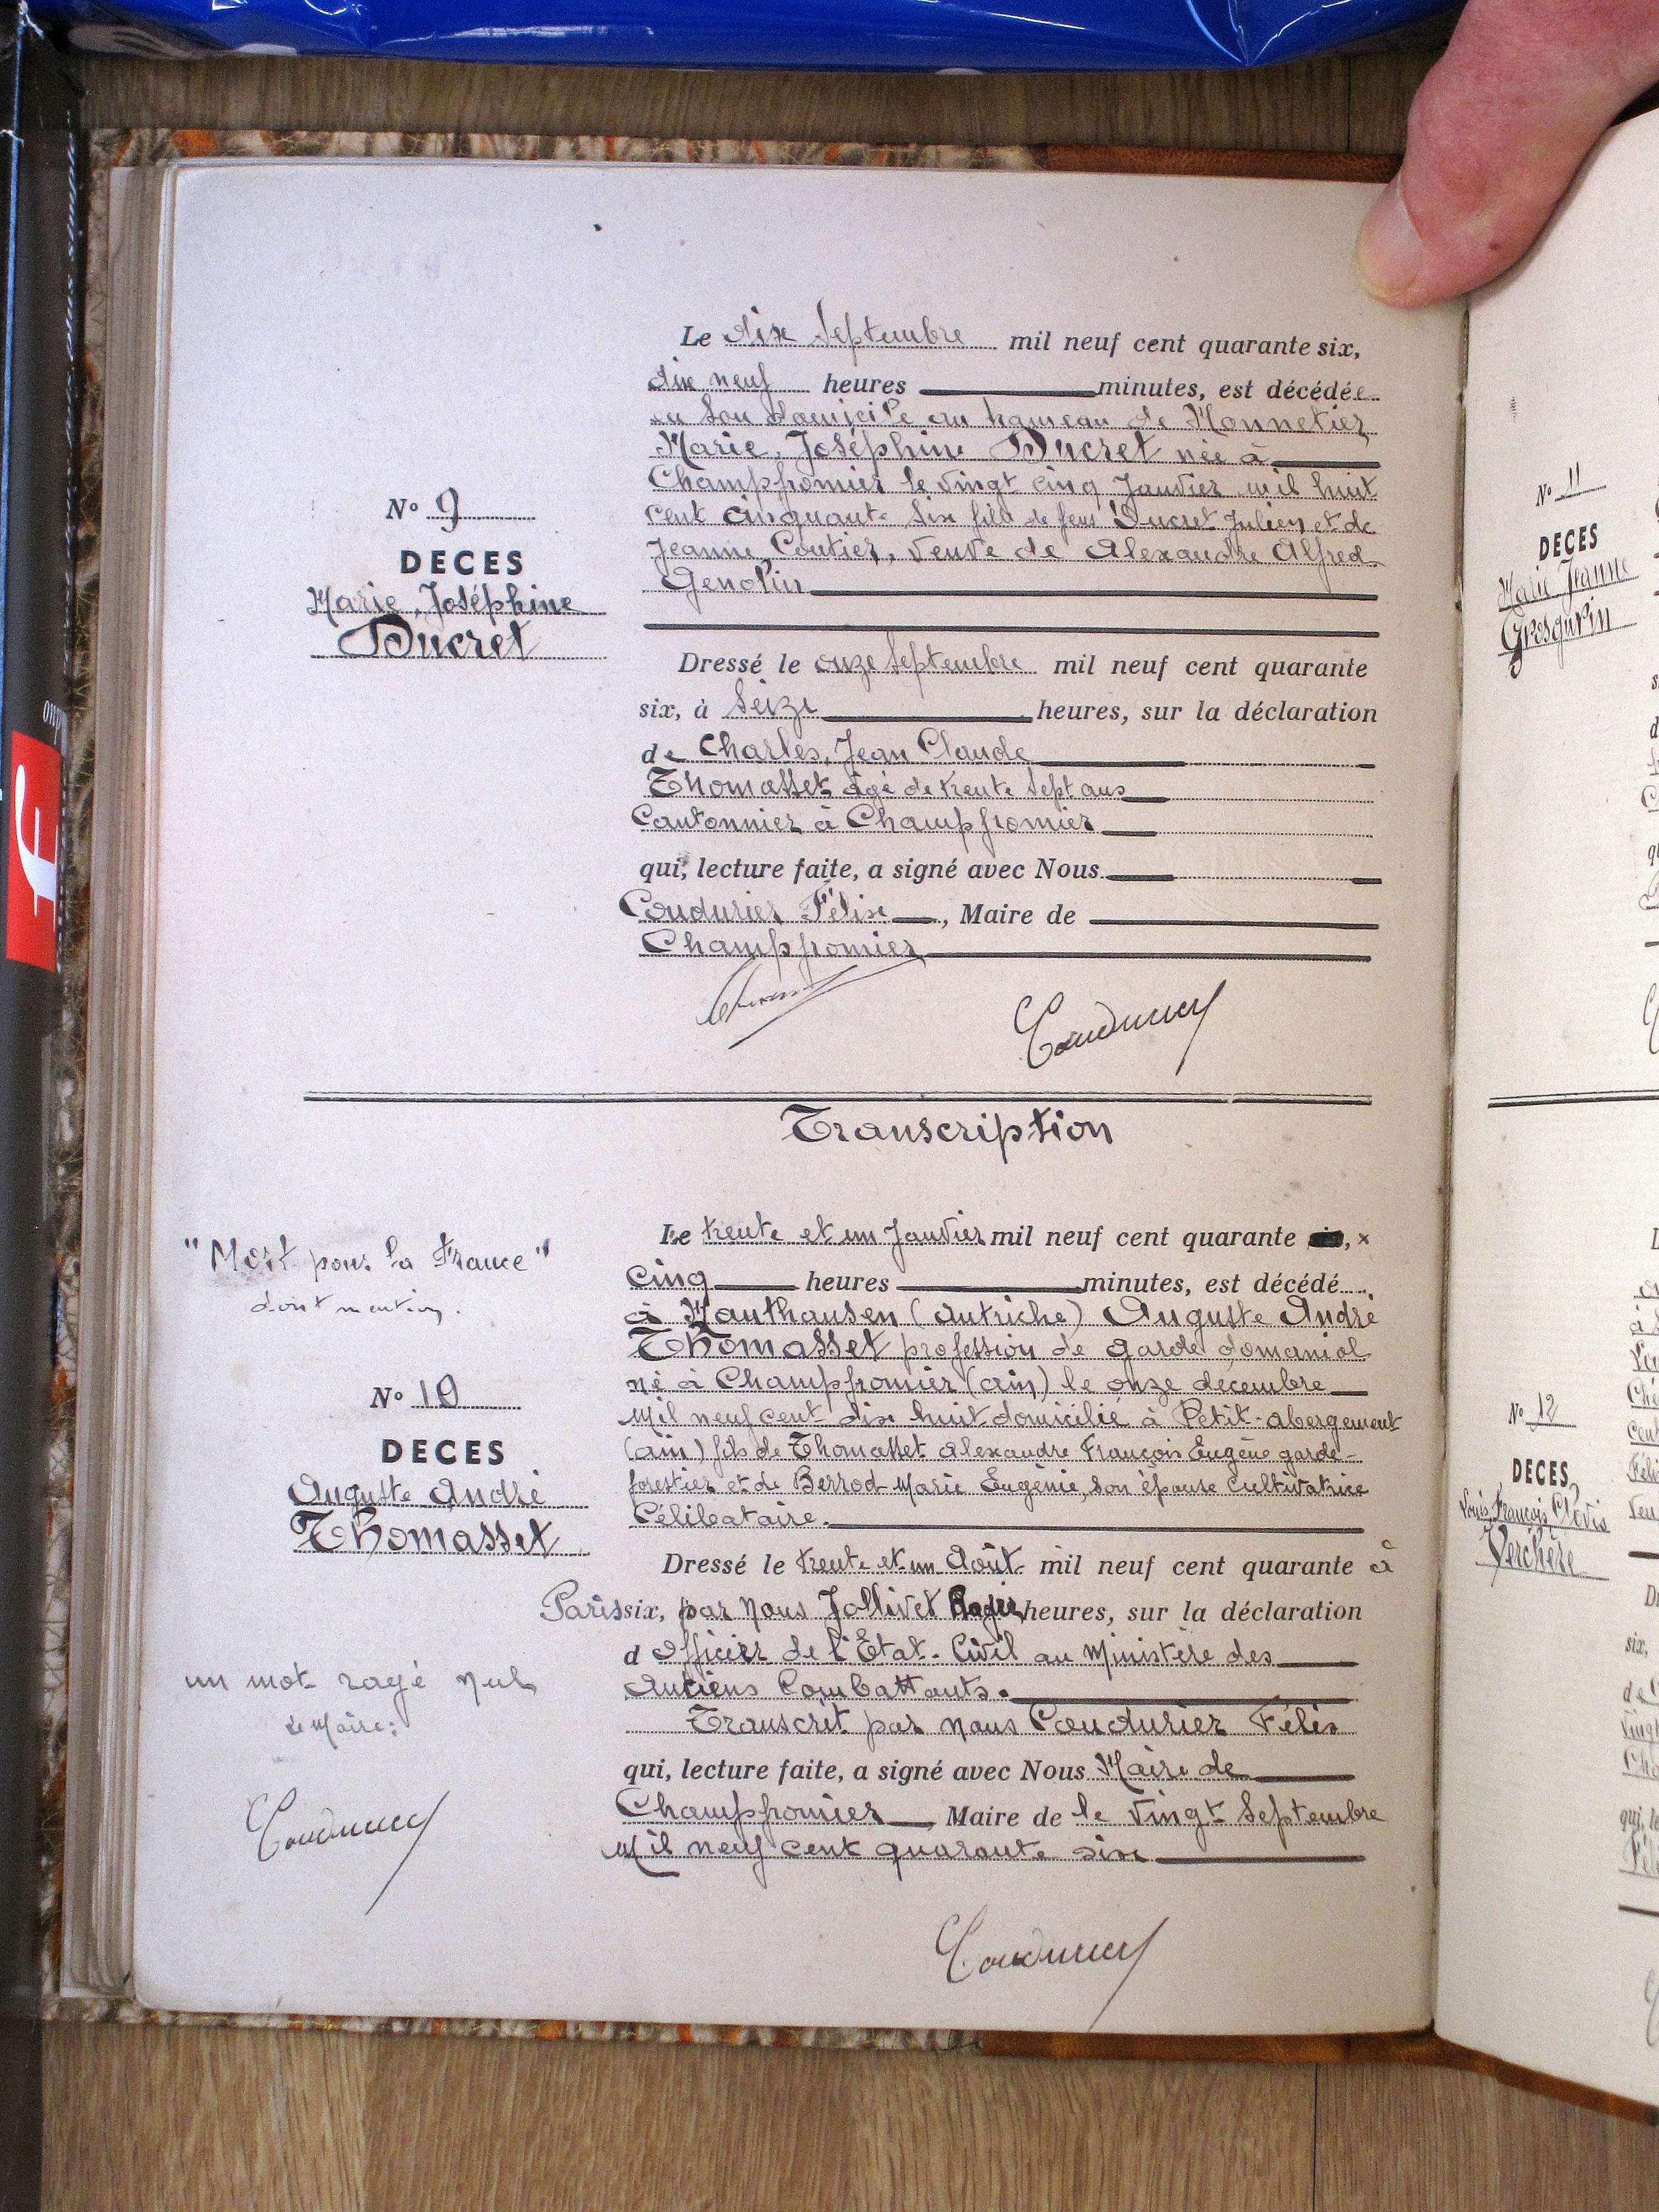 Le dix Septembre mil neuf cent quarante six,
dix neuf heures minutes, est décédée
en son domicile au hameau de Monnetier
Marie, Joséphine Ducret née à
Champfromier le vingt cinq Janvier mil huit
cent cinquante six fille de feus Ducret Julien et de
Jeanne Coutier, veuve de Alexandre Alfred
Genolin
N° 9
DECES
Marie, Joséphine
Ducret
Dressé le onze Septembre mil neuf cent quarante
six, à Seize heures, sur la déclaration
de Charles, Jean Claude
Thomasset âgé de trente sept ans
Cantonnier à Champfromier
qui, lecture faite, a signé avec Nous
Coudurier Félix, Maire de
Champfromier
Coudurier
Transcription
"Mort pour la France"
dont mention.
Le trente et un Janvier mil neuf cent quarante
cinq heures minutes, est décédé
à Mauthausen (Autriche) Auguste André
Thomasset profession de garde domanial
né à Champfromier (ain) le onze décembre
mil neuf cent dix huit domicilié à Petit-abergement
(ain) fils de Thomasset Alexandre François Eugène garde-
forestier et de Berrod Marie Eugénie, son épouse cultivatrice
Célibataire.
N° 10
DECES
Auguste André
Thomasset
Dressé le trente et un Août mil neuf cent quarante à
Paris six, par nous Jollivet Roger heures, sur la déclaration
d officier de l'Etat-Civil au Ministère des
Anciens Combattants.
Transcrit par nous Coudurier Félix
qui, lecture faite, a signé avec Nous Maire de
Champfromier Maire de le vingt Septembre
mil neuf cent quarante six
un mot rayé nul
Le Maire:
Coudurier
Coudurier
N° 11
DECES
Marie Jeanne
Grosgurin
N° 12
DECES
Louis, François, Clovis
Verchère